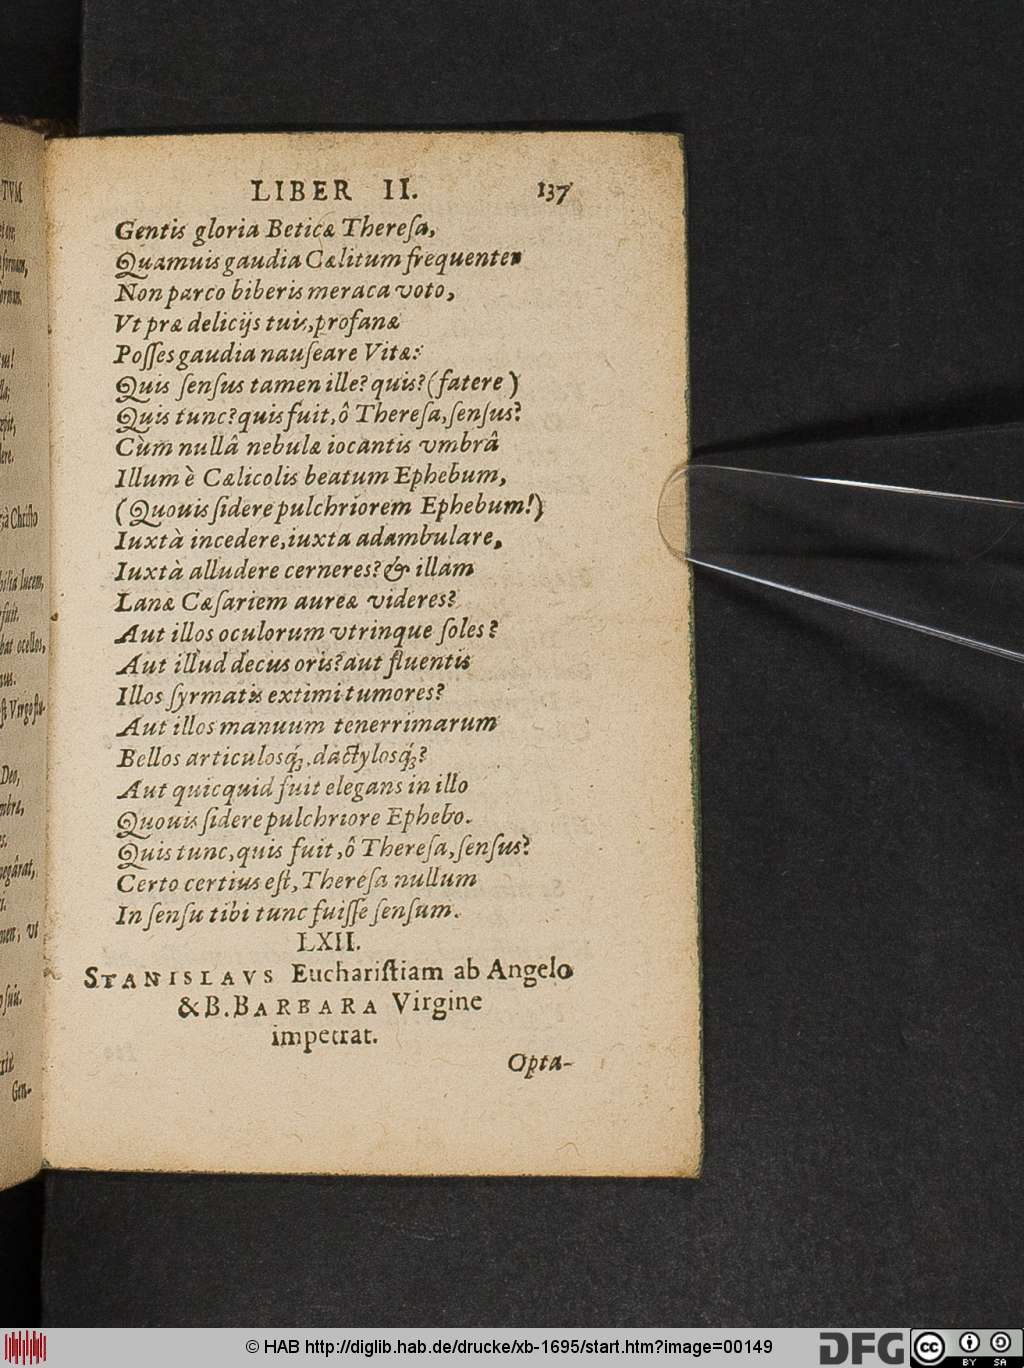 LIBER II. 137
Gentis gloria Beticæ Thereſa,
Quamuis gaudia Cælitum frequenter
Non parco biberis meraca voto,
Vt præ delicijs tuis, profanæ
Poſſes gaudia nauſeare Vitæ:
Quis ſenſus tamen ille? quis? (fatere)
Quis tunc? quis fuit, ô Thereſa, ſenſus?
Cùm nullâ nebulæ iocantis vmbrâ
Illum è Cælicolis beatum Ephebum,
(Quouis ſidere pulchriorem Ephebum!)
Iuxtà incedere, iuxta adambulare,
Iuxtà alludere cerneres? & illam
Lanæ Cæſariem aureæ videres?
Aut illos oculorum vtrinque ſoles?
Aut illud decus oris? aut fluentis
Illos ſyrmatis extimi tumores?
Aut illos manuum tenerrimarum
Bellos articulosq́;, dactylosq́;?
Aut quicquid fuit elegans in illo
Quouis ſidere pulchriore Ephebo.
Quis tunc, quis fuit, ô Thereſa, ſenſus?
Certo certius eſt, Thereſa nullum
In ſenſu tibi tunc fuiſſe ſenſum.
LXII.
STANISLAVS Euchariſtiam ab Angelo
& B. BARBARA Virgine
impetrat.
Opta-
TVM
formam,
zià Chriſto
bilia lucem,
fuit.
bat ocellos,
ſt Virgo ſtu-
Deo,
negârat,
Gen-
© HAB http://diglib.hab.de/drucke/xb-1695/start.htm?image=00149
DFG
cc
BY SA